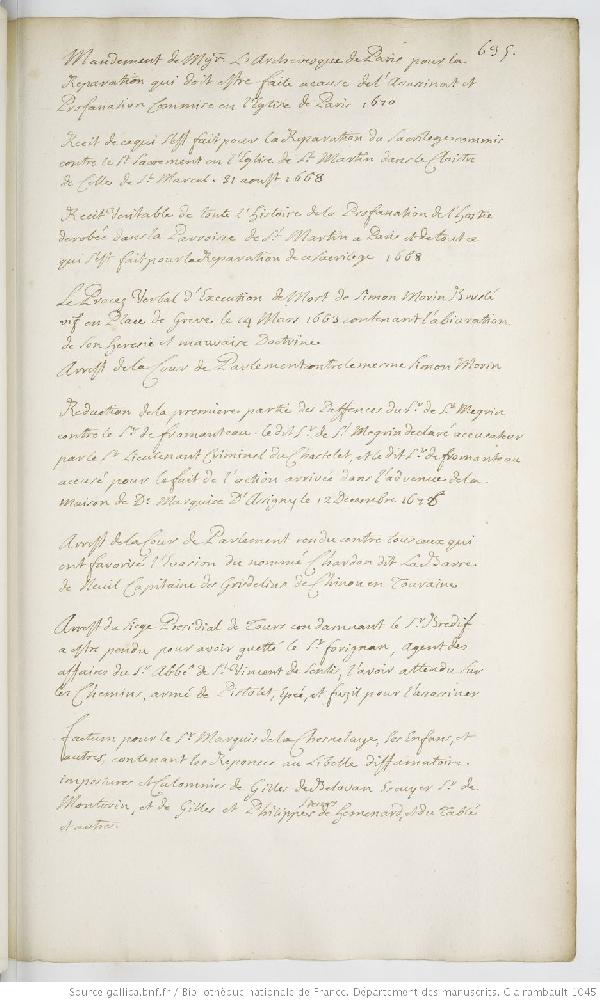 635.
Mandement de Mgr. L'Archevesque de Paris pour la
Reparation qui doit estre faite a cause de l'Assasinat et
Profanation Commise en l'Eglise de Paris 1670
Recit de ce qui s'est fait pour la Reparation du Sacrilege commis
contre le St. Sacrement en l'Eglise de St. Martin dans le Cloistre
de St. Marcel. 31 aoust 1668
Recit Veritable de toute l'Histoire de la Profanation de l'Hostie
derobée dans la Parroisse de St. Martin a Paris et de tout ce
qui s'est fait pour la Reparation de ce Sacrilege 1668
Le Procez Verbal d'Execution de Mort de Simon Morin Bruslé
vif en Place de Greve le 14 Mars 1663 contenant l'abiuration
de son heresie et mauvaise Doctrine
Arrest de la Cour de Parlement contre le mesme Simon Morin
Reduction de la premiere partie des Deffences du Sr. de St. Megrin
contre le Sr. de fromanteau. le dit Sr. de St. Megrin declaré accusateur
par le Sr. Lieutenant Criminel du Chastelet, et le dit Sr. de fromanteau
accusé pour le fait de l'action arrivée dans l'advenue de la
maison de De. Marquise D'Asigny le 12 Decembre
Arrest de la Cour de Parlement rendu contre tous ceux qui
ont favorisé l'Evasion du nommé Chardon dit La Barre
de Neuil Capitaine des Gredelins de Chinon en Touraine
Arrest du Siege Presidial de Tours condamnant le Sr. Bredif
a estre pendu pour avoir guetté le Sr. forignan, agent des
affaires du Sr. Abbé de St. Vincent de Senlis, l'avoir attendu sur
les Chemins, armé de Pistolet, Epée, et fuzil pour l'assassiner
factum pour le Sr. Marquis de la Chesnelaye, ses Enfans, et
autres, contenant les Reponses au Libelle diffamatoire
impostures et Calomnies de Gilles de Escuyer Sr. de
et de Gilles et Philippes Sieurs de et du Tablé
et autres.
Source gallica.bnf.fr / Bibliothèque nationale de France. Département des manuscrits. Clairambault 1045